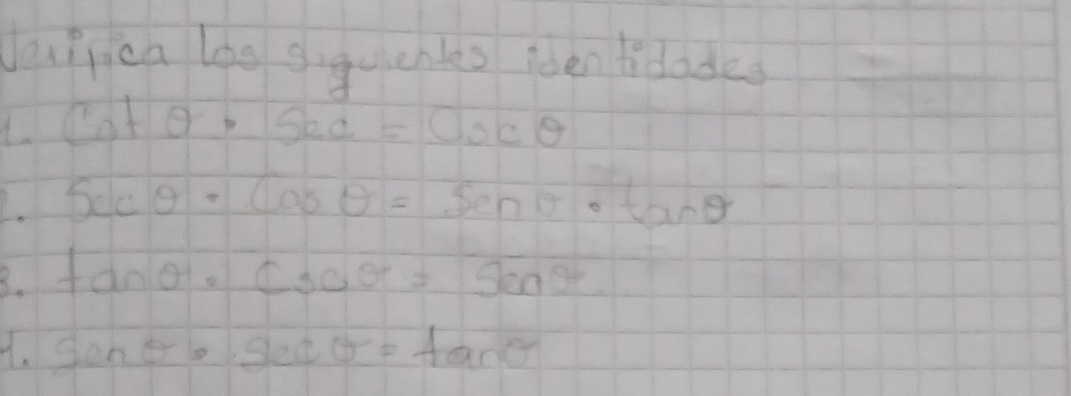 Verifica las siguientes identidades
1. Cot θ • Sec = Csc θ
2. Sec θ • Cos θ = Sen θ • tan θ
3. tan θ • Csc θ = Sen θ
4. Sen θ • Sec θ = tan θ